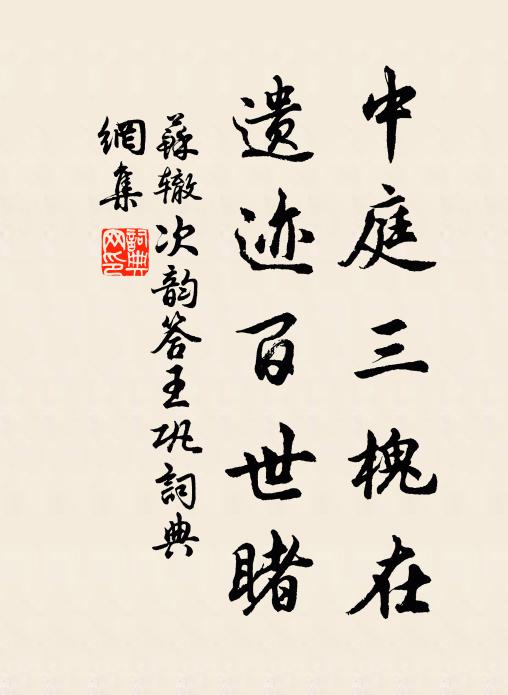 中庭三槐在
遗迹百世睹
蘇辙次韵答王巩詞典
網集
詞典
网印